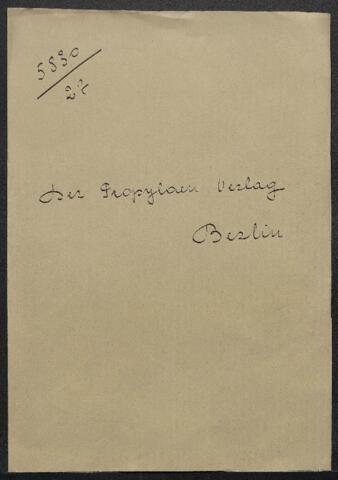 5830
Der Propylaen Verlag
Berlin